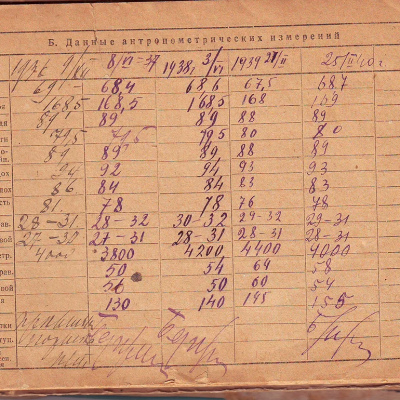 Б. Данные антропометрических измерений
1936 9/XII 8/VI-37 1938, 3/VI 1939 21/II 25/II 40 г
69 68,4 68,6 67,5 68.7
168,5 168,5 1685 168 169
89 89 89 88 89
79,5 79,5 795 80 80
89 89 89 88 89
дох 94 92 94 93 93
пох 86 84 84 83 83
81 78 78 76 78
ав. 28-31 28-32 30-32 29-32 29-31
вой 27-30 27-31 28-31 28-31 28-31
етр. 4000 3800 4200 4400 4000
50 54 64 58
вой 56 50 60 54
130 140 145 155